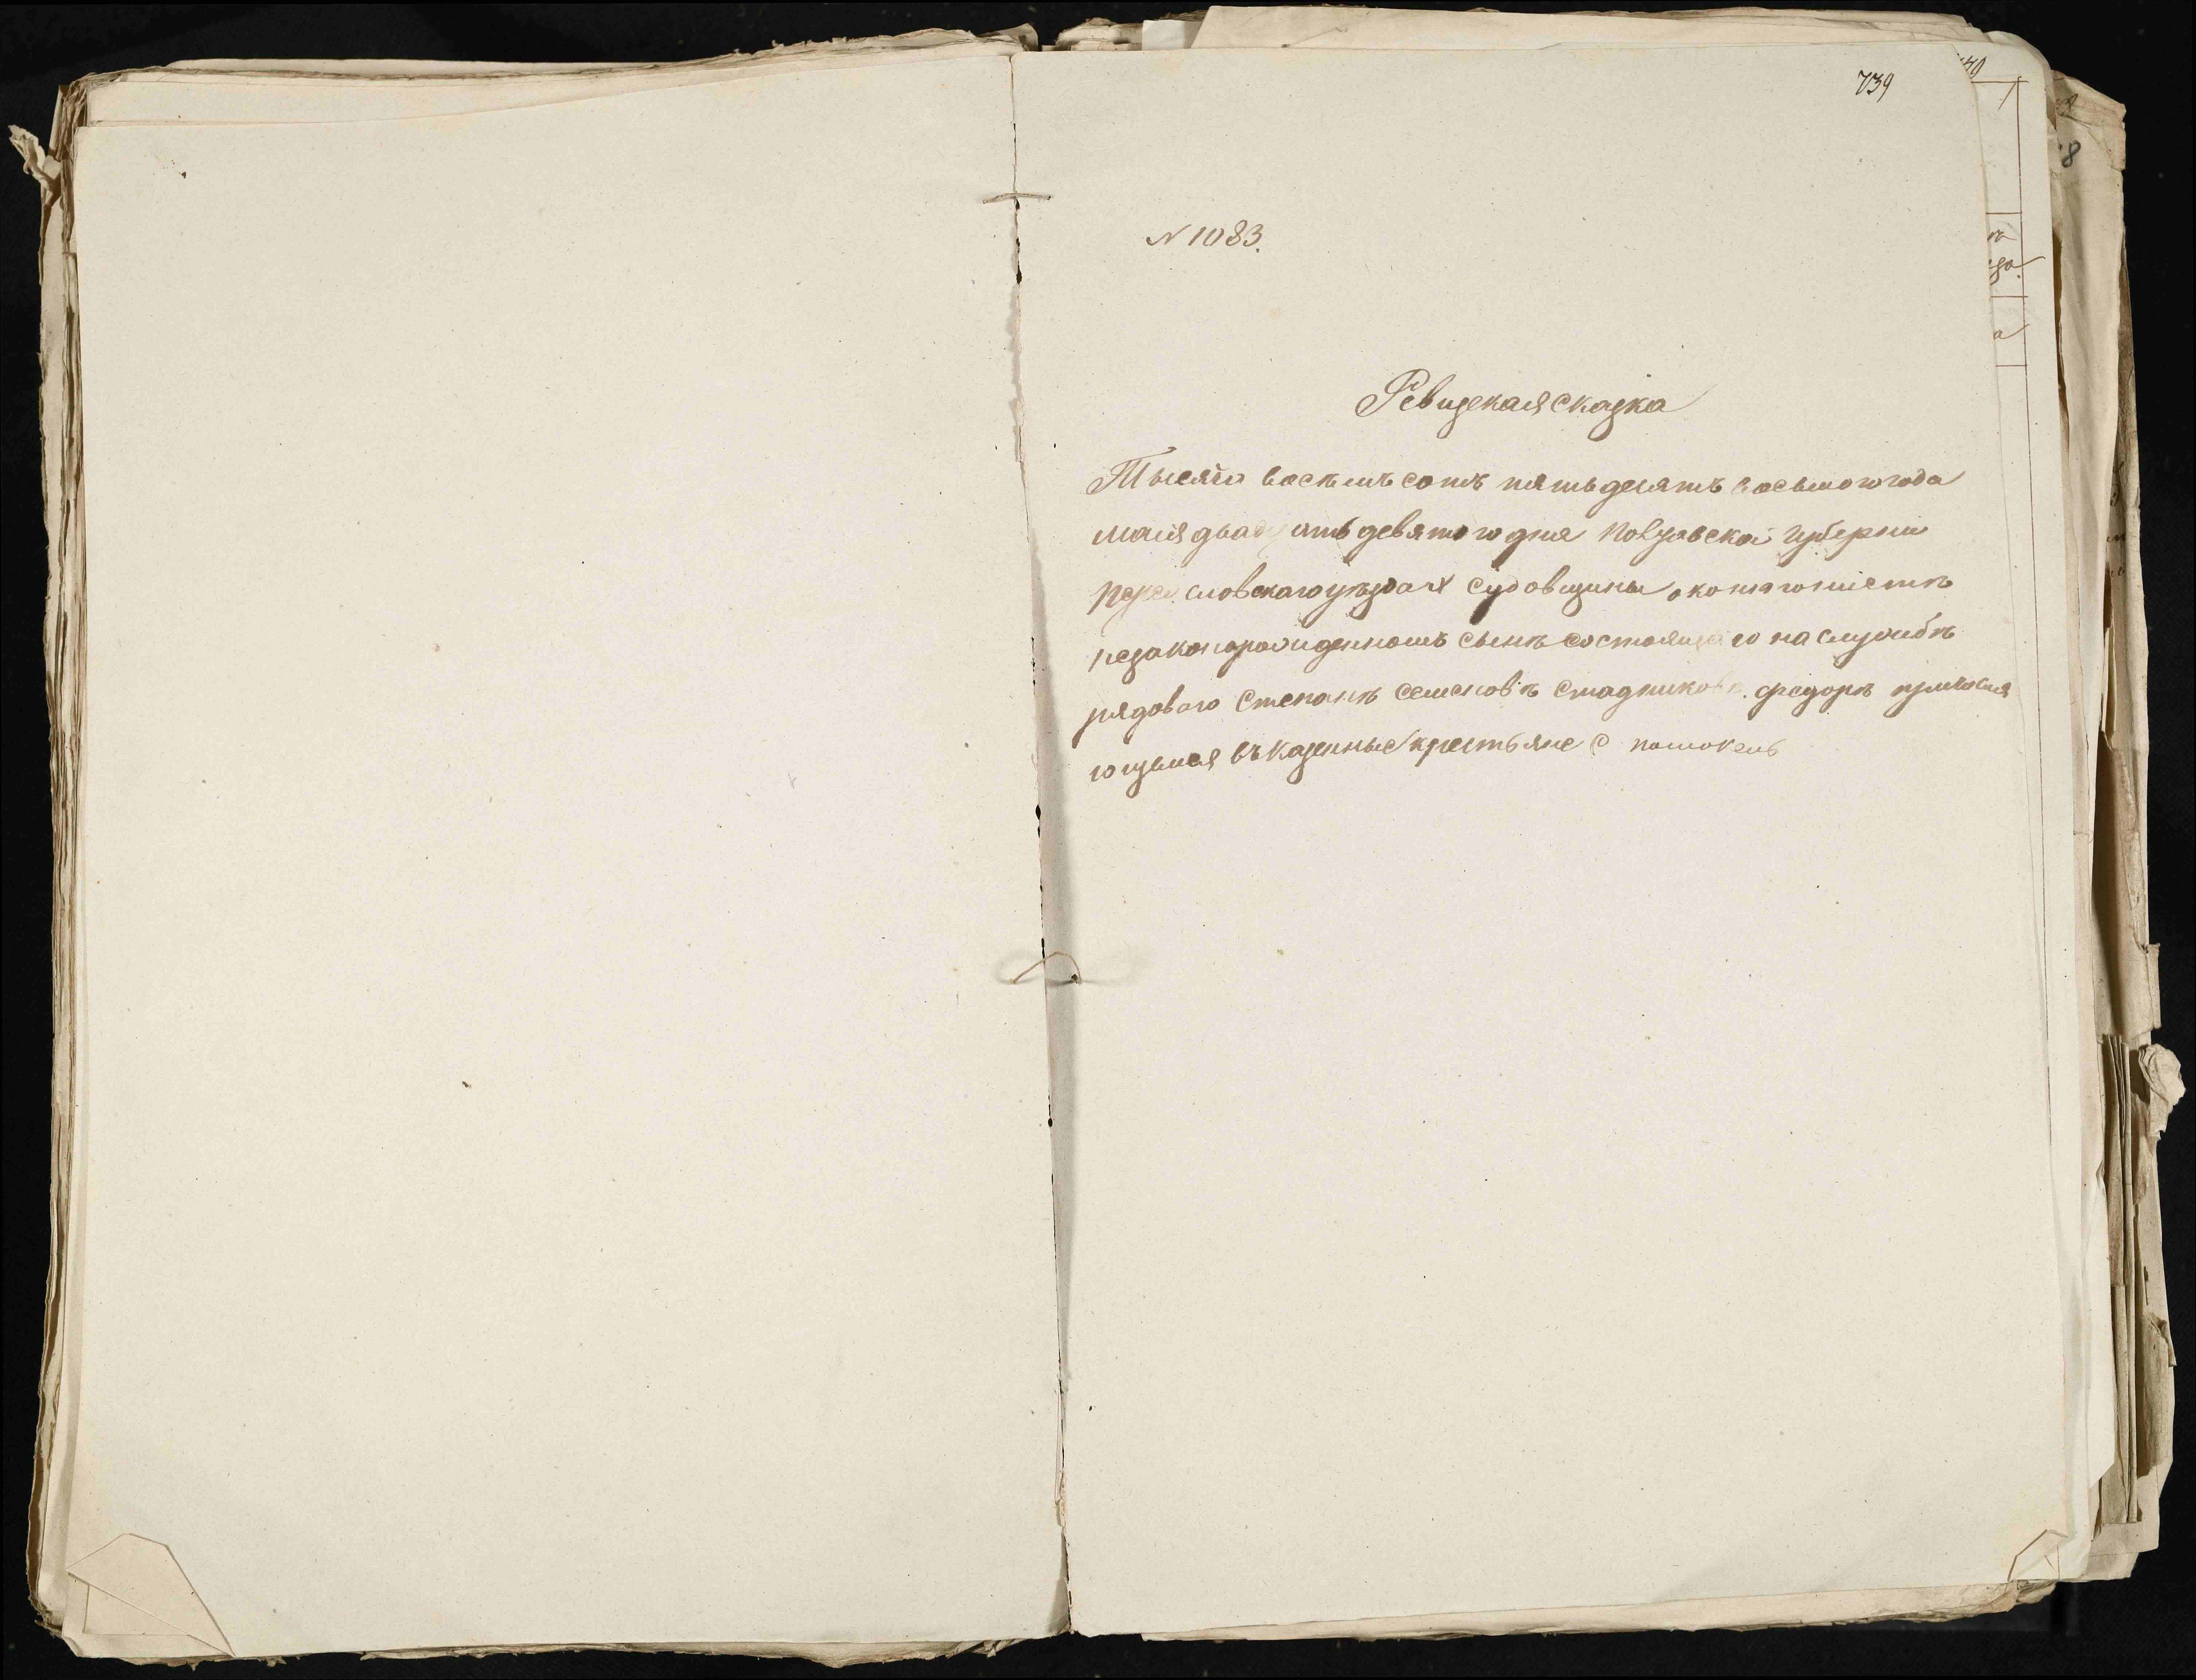 739
N 1083.
Ревизская сказка
Тысяча восѣмъ сотъ пятьдесятъ восьмого года
мая двадцать девятого дня Полтавской Губерніи
Переяславскаго уѣзда
незаконорожденномъ сынѣ состоящаго на службѣ
рядоваго Степанѣ Семеновѣ Стадниковѣ Федорѣ
ющемся въ казенные крестьяне с